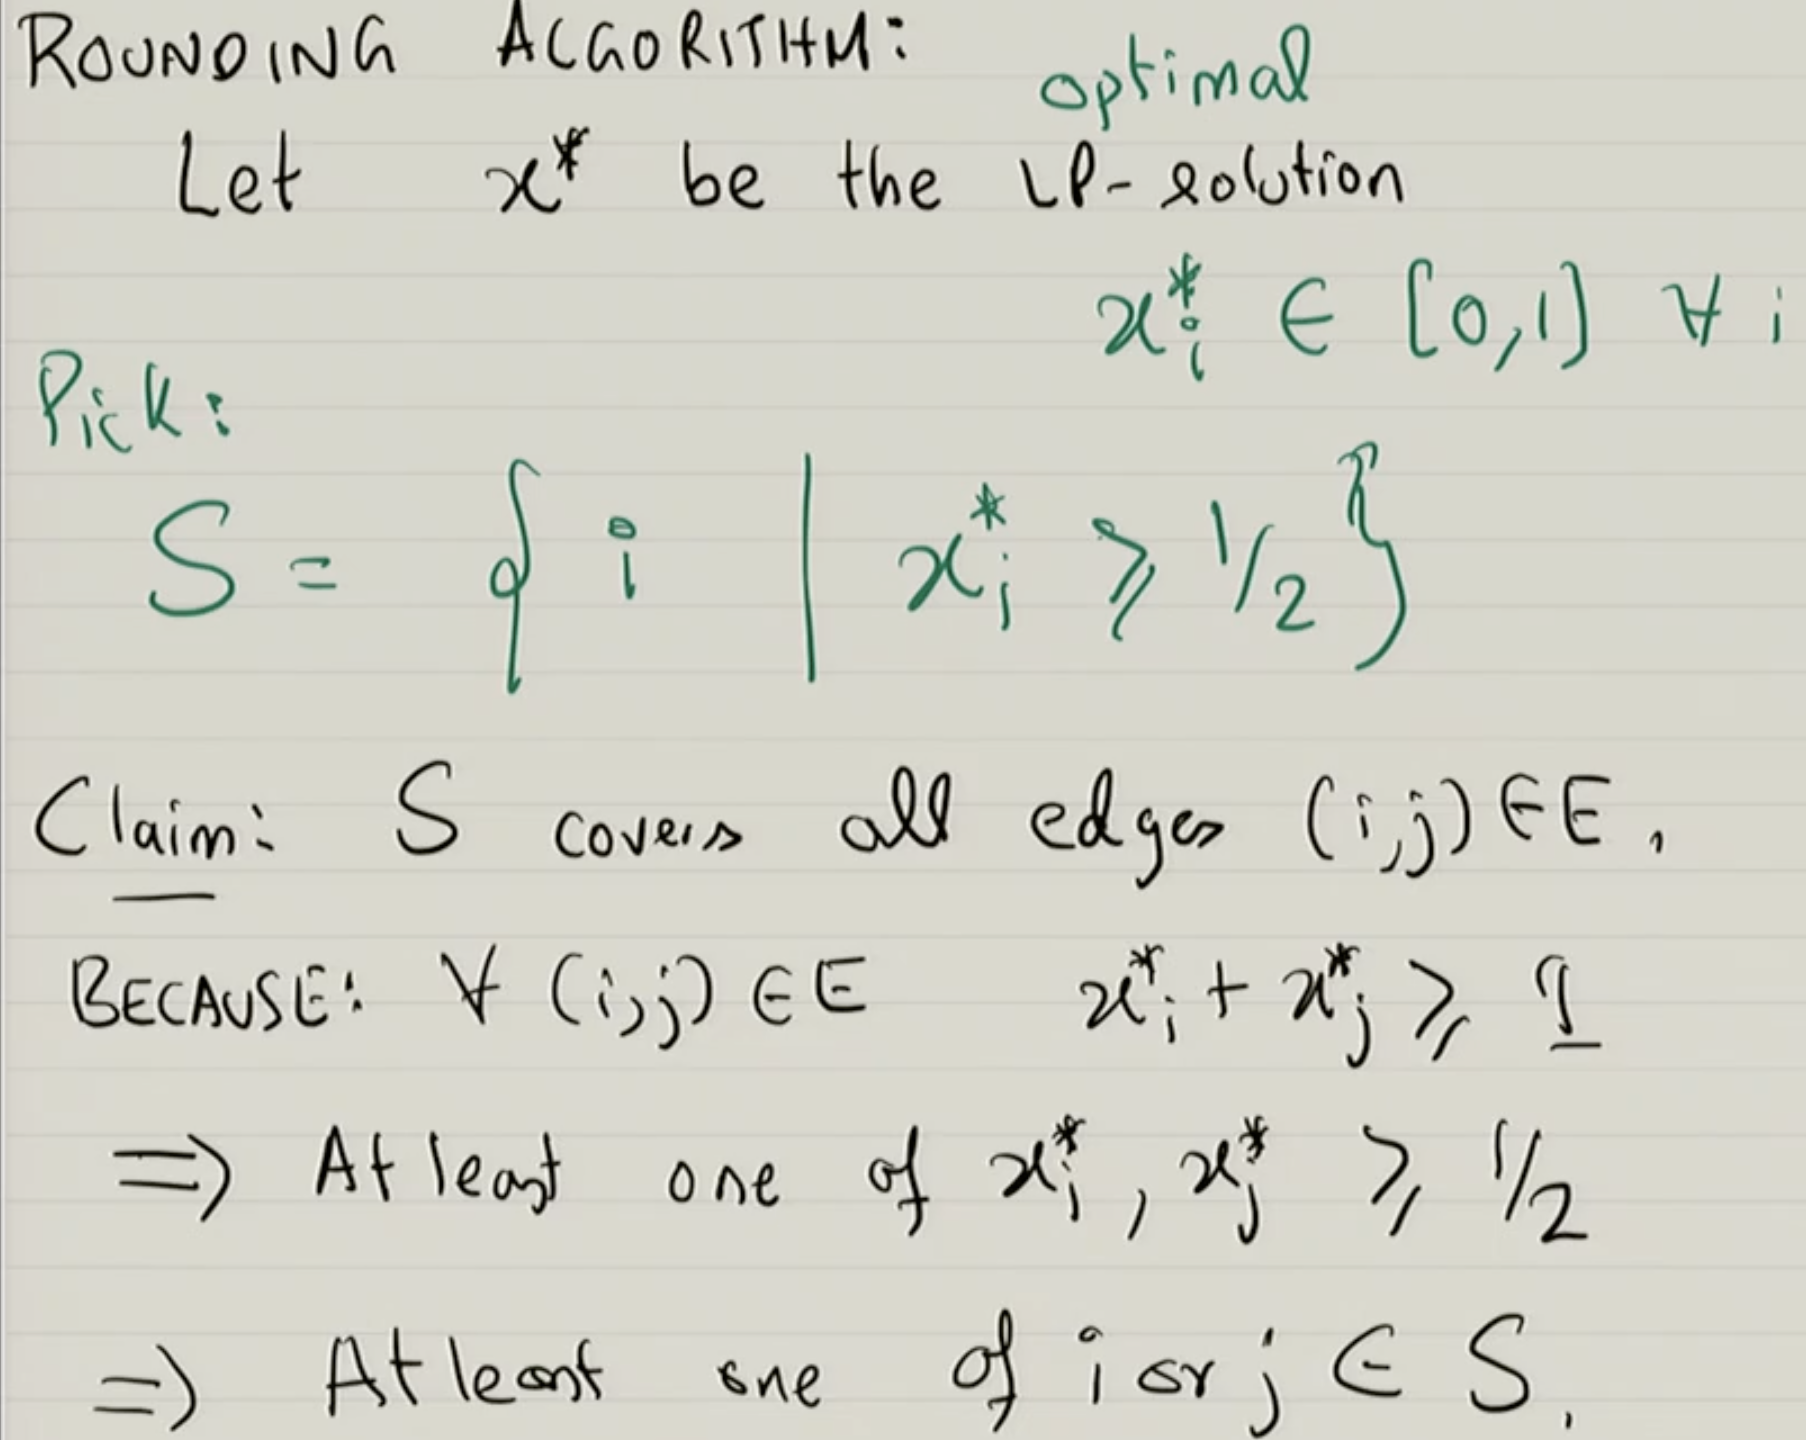 ROUNDING ALGORITHM:
optimal
Let x* be the LP-solution
x*i ∈ [0,1] ∀ i
Pick:
S = { i | x*i ⩾ 1/2 }
Claim: S covers all edges (i,j) ∈ E.
BECAUSE: ∀ (i,j) ∈ E x*i + x*j ⩾ 1
=> At least one of x*i, x*j ⩾ 1/2
=> At least one of i or j ∈ S.